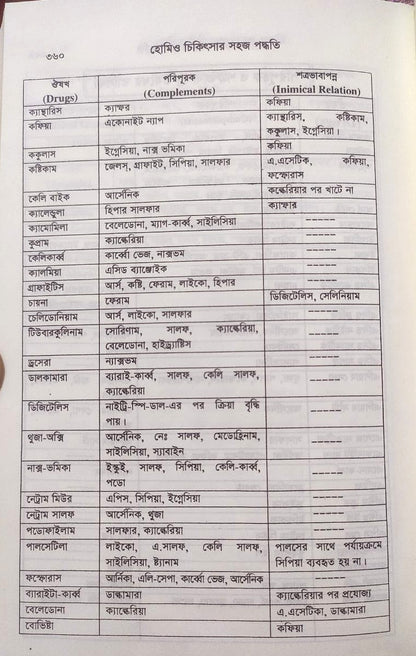 ৩৬০ হোমিও চিকিৎসার সহজ পদ্ধতি
ঔষধ (Drugs) পরিপূরক (Complements) শত্রুভাবাপন্ন (Inimical Relation)
ক্যান্থারিস ক্যাম্ফর কফিয়া
কফিয়া একোনাইট ন্যাপ ক্যান্থারিস, কষ্টিকাম,
ককুলাস, ইগ্নেসিয়া।
ককুলাস ইগ্নেসিয়া, নাক্স ভমিকা কফিয়া
কষ্টিকাম জেলস, গ্রাফাইট, সিপিয়া, সালফার এ,এসেটিক, কফিয়া,
ফস্ফোরাস
কেলি বাইক আর্সেনিক কল্কেরিয়ার পর খাটে না
ক্যালেন্ডুলা হিপার সালফার ক্যাম্ফার
ক্যামোমিলা বেলেডোনা, ম্যাগ-কার্ব্ব, সাইলিসিয়া -----
কুপ্রাম ক্যাল্কেরিয়া -----
কেলিকার্ব্ব কার্ব্বো ভেজ, নাক্সভম -----
ক্যালমিয়া এসিড ব্যাঞ্জোইক -----
গ্রাফাইটিস আর্স, কষ্টি, ফেরাম, লাইকো, হিপার -----
চায়না ফেরাম ডিজিটেলিস, সেলিনিয়াম
চেলিডোনিয়াম আর্স, লাইকো, সালফার -----
টিউবারকুলিনাম সোরিণাম, সালফ, ক্যাল্কেরিয়া, -----
বেলেডোনা, হাইড্র্যাষ্টিস
ড্রসেরা ন্যাক্সভম -----
ডালকামারা ব্যারাই-কার্ব্ব, সালফ, কেলি সালফ, -----
ক্যাল্কেরিয়া
ডিজিটেলিস নাইট্রি-স্পি-ডাল-এর পর ক্রিয়া বৃদ্ধি -----
পায়।
থুজা-অক্সি আর্সেনিক, নেঃ সালফ, মেডোহ্রিনাম, -----
সাইলিসিয়া, স্যাবাইন
নাক্স-ভমিকা ইস্কুই, সালফ, সিপিয়া, কেলি-কার্ব্ব, -----
পডো
নেট্রাম মিউর এপিস, সিপিয়া, ইগ্নেসিয়া -----
নেট্রাম সালফ আর্সেনিক, থুজা -----
পডোফাইলাম সালফার, ক্যাল্কেরিয়া -----
পালসেটিলা লাইকো, এ.সালফ, কেলি সালফ, পালসের সাথে পর্যায়ক্রমে
সাইলিসিয়া, ষ্ট্যানাম সিপিয়া ব্যবহৃত হয় না।
ফস্ফোরাস আর্নিকা, এলি-সেপা, কার্ব্বো ভেজ, আর্সেনিক -----
ব্যারাইটা-কার্ব্ব ডাল্কামারা ক্যাল্কেরিয়ার পর প্রযোজ্য
বেলেডোনা ক্যাল্কেরিয়া এ,এসেটিকা, ডাল্কামারা
বোভিষ্টা কফিয়া